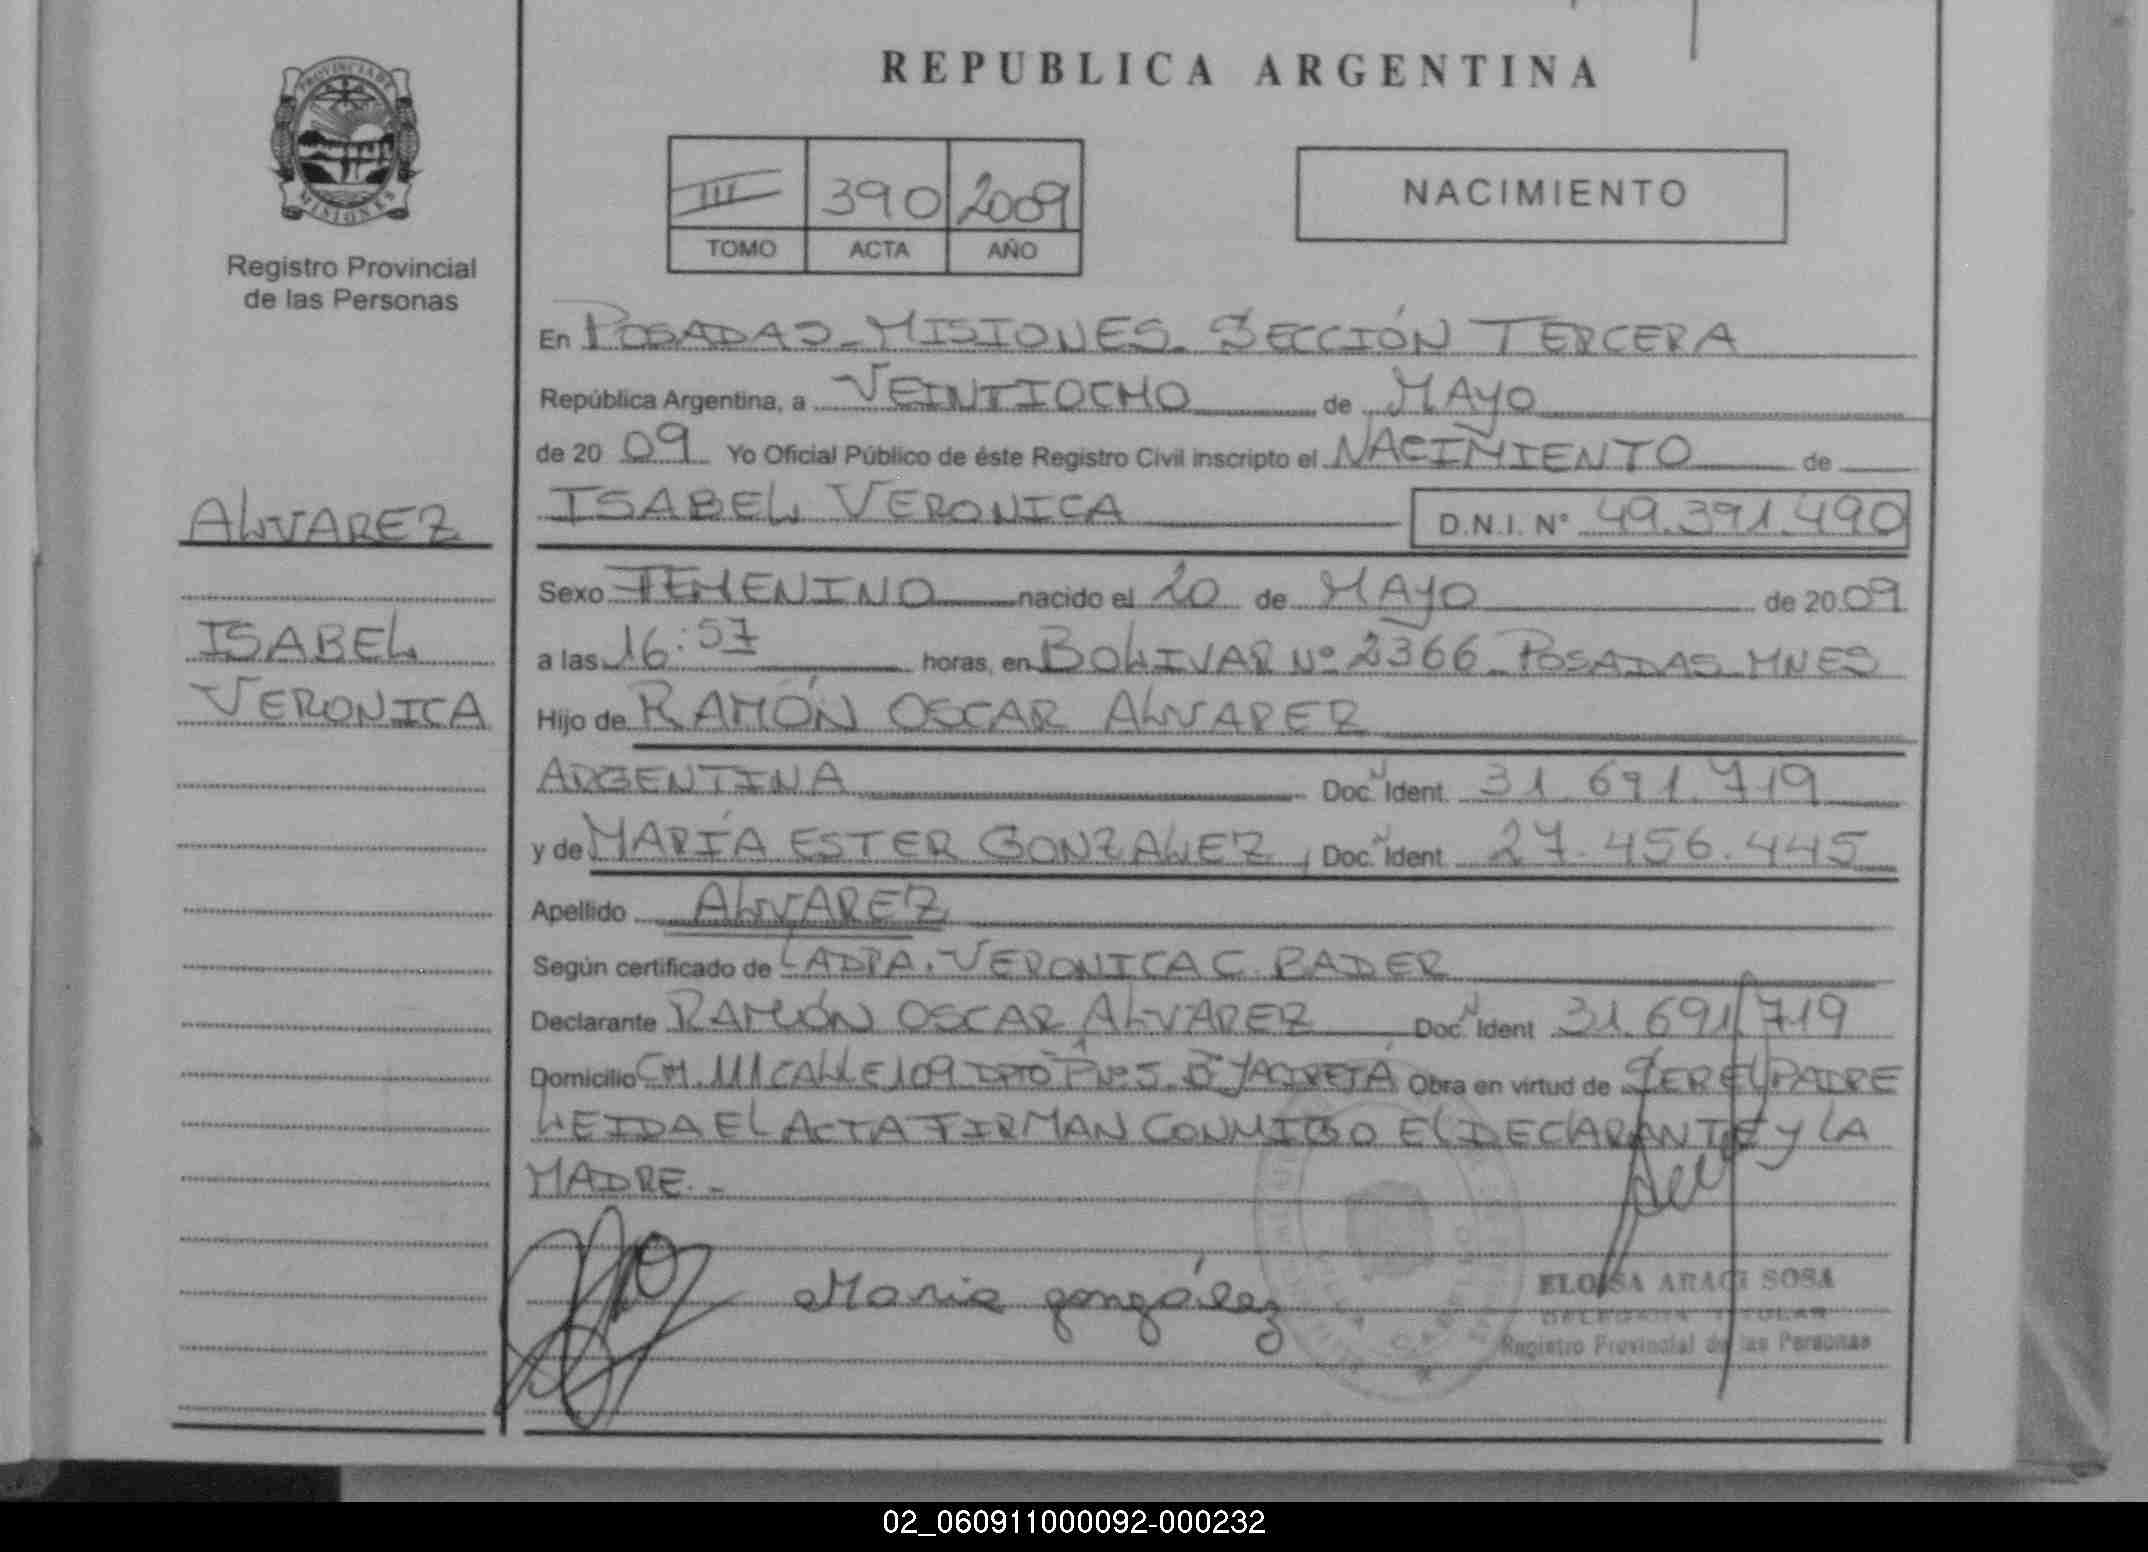 REPUBLICA ARGENTINA
PROVINCIA DE
MISIONES
Registro Provincial
de las Personas
III 390 2009
TOMO ACTA AÑO
NACIMIENTO
En POSADAS-MISIONES-SECCIÓN TERCERA
República Argentina, a VEINTIOCHO de MAYO
de 20 09 Yo Oficial Público de éste Registro Civil inscripto el NACIMIENTO de
ALVAREZ
ISABEL VERONICA D.N.I. Nº 49.391.490
Sexo FEMENINO nacido el 20 de MAYO de 2009
ISABEL
a las 16:57 horas, en BOLIVAR Nº 2366-POSADAS-MNES
VERONICA
Hijo de RAMÓN OSCAR ALVAREZ
ARGENTINA Doc. N Ident. 31.691.719
y de MARÍA ESTER GONZALEZ, Doc. N Ident. 27.456.445
Apellido ALVAREZ
Según certificado de LA DRA. VERONICA C. BADER
Declarante RAMÓN OSCAR ALVAREZ Doc. N Ident 31.691.719
Domicilio CH. 111 CALLE 109 DPTO Nº 5 Bº YACIRETÁ Obra en virtud de SER EL PADRE
LEIDA EL ACTA FIRMAN CONMIGO EL DECLARANTE Y LA
MADRE.-
Maria gongález
ELOISA ARACI SOSA
DELEGADA TITULAR
Registro Provincial de las Personas
02_060911000092-000232